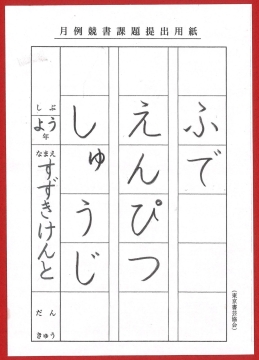 月例競書課題提出用紙
ふで
えんぴつ
しゅうじ
しぶ
よう
年
なまえ
すずきけんと
だん
きゅう
(東京書芸協会)